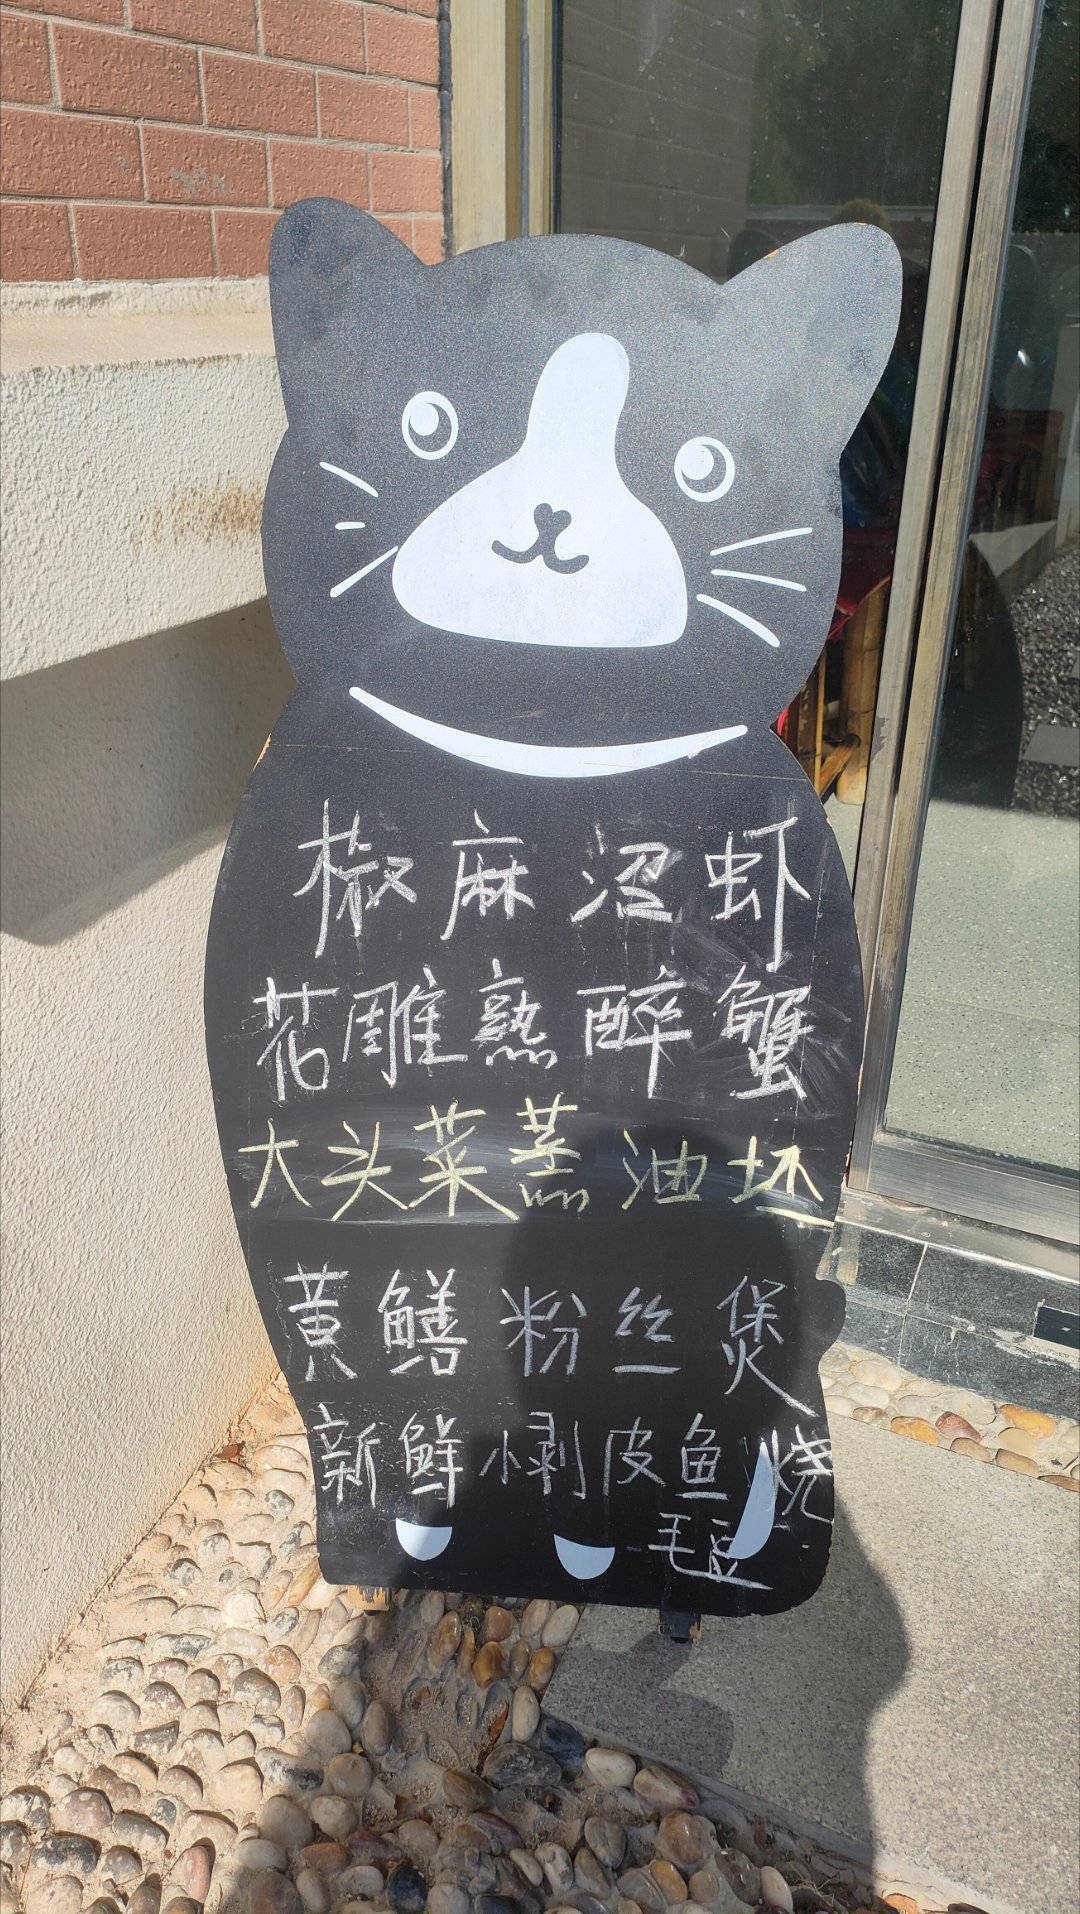 椒麻沼虾
花雕熟醉蟹
大头菜蒸油坯
黄鳝粉丝煲
新鲜小剥皮鱼烧
毛豆